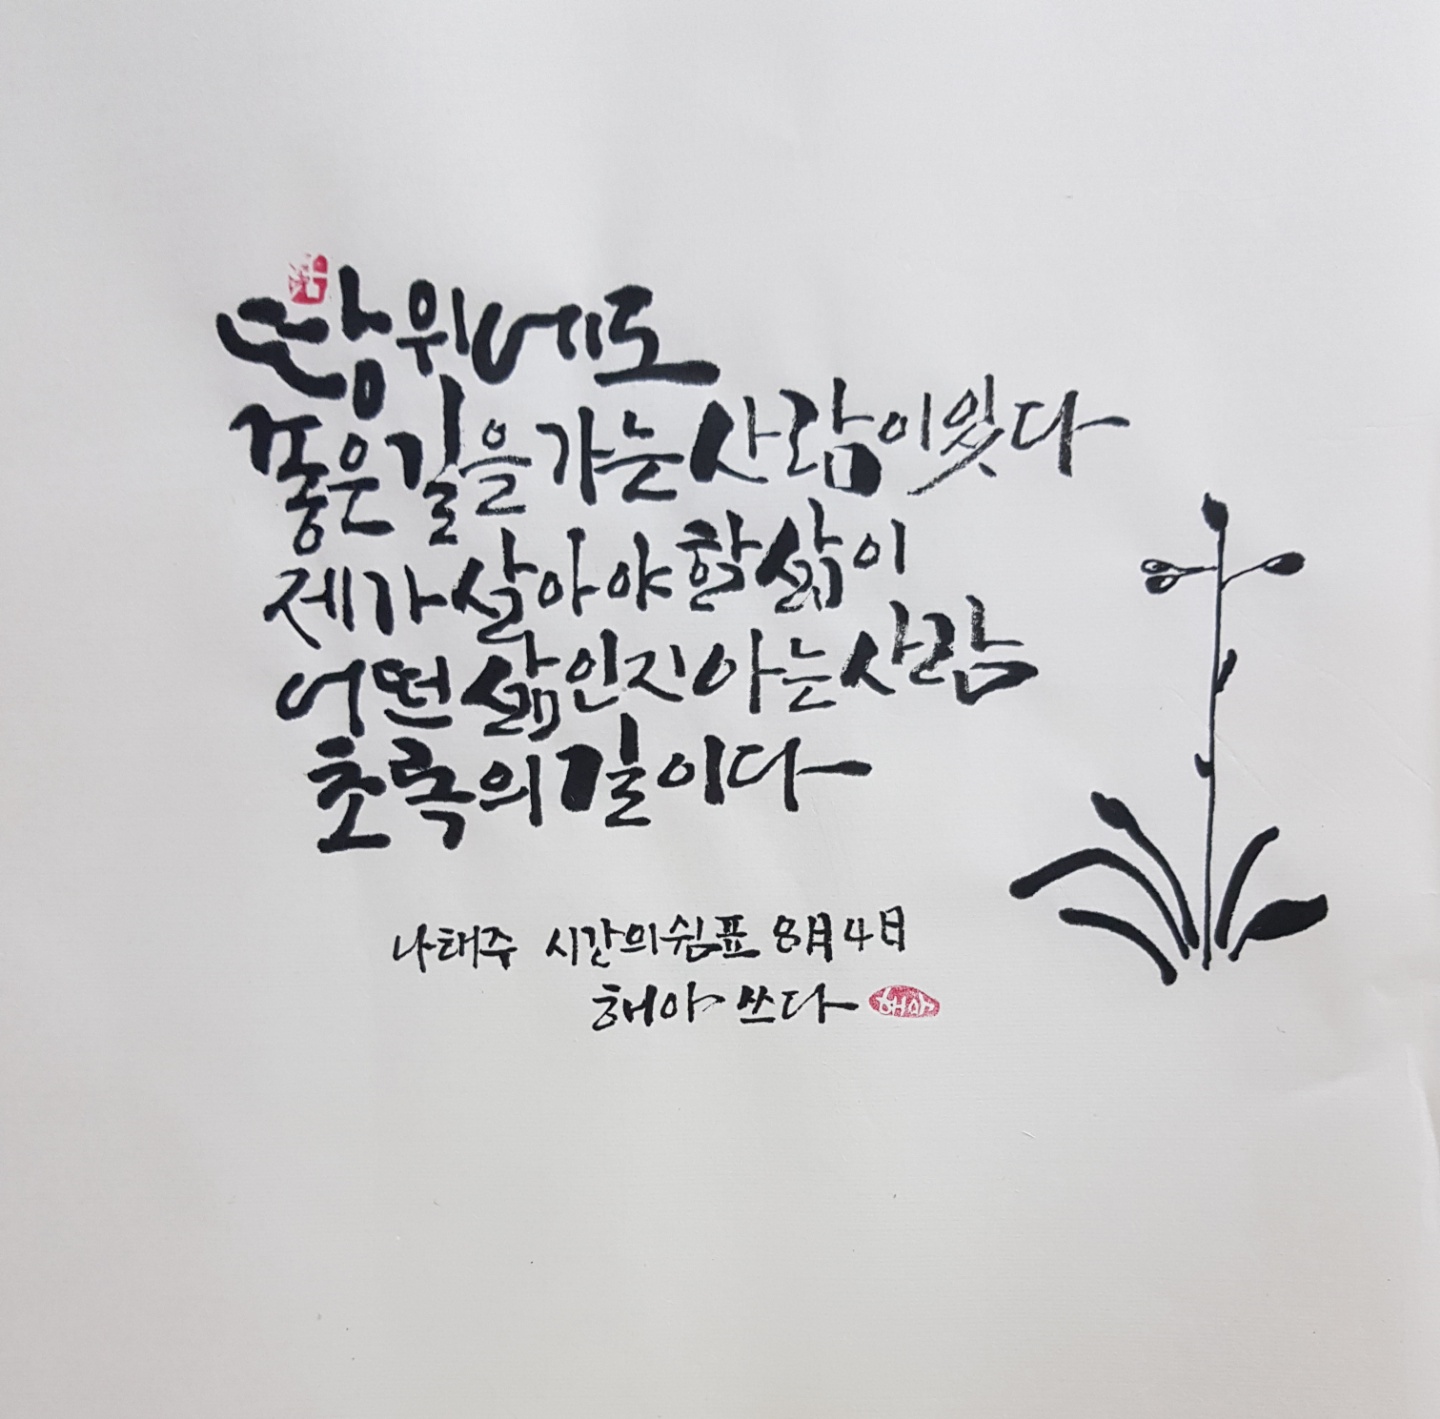 땅위에도
좋은길을가는사람이있다
제가살아야할삶이
어떤삶인지아는사람
초록의길이다
나태주 시간의쉼표 8月4日
해야 쓰다 해야